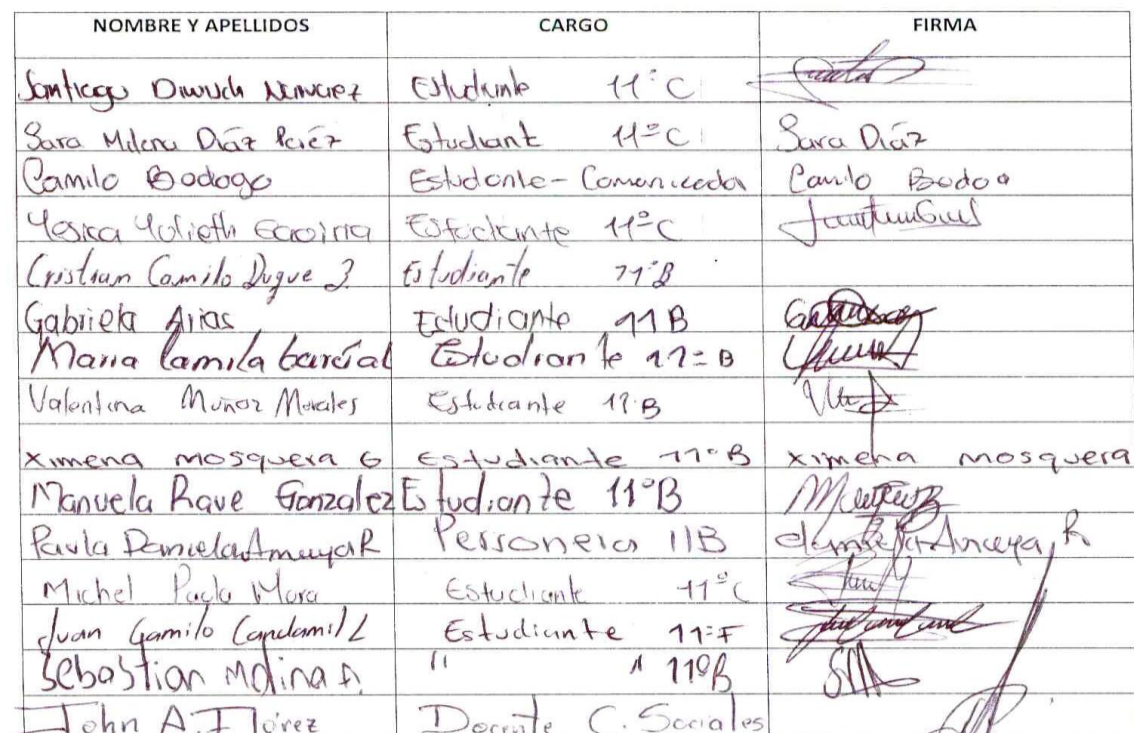 NOMBRE Y APELLIDOS CARGO FIRMA
Santiago Estudiante 11°C
Sara Milena Díaz Peréz Estudiant 11°C Sara Diáz
Camilo Bodogo Estudante - Comunicada Camilo Bodoo
Yesica Yolieth Estudiante 11°C
Cristian Camilo Duque J. Estudiante 11°B
Gabriela Arias Estudiante 11B
Maria Camila Garcíal Estudiante 11° B
Valentina Muñoz Morales Estudiante 11.B
Ximena mosquera G Estudiante 11°B Ximena mosquera
Manuela Rave Gonzalez Estudiante 11°B
Paula Daniela Amaya R Personera 11B
Michel Paola Mora Estudiante 11°C
Juan Camilo Candamil L Estudiante 11°F
Sebastian Molina A. " " 11°B
John A. Flórez Docente C. Sociales